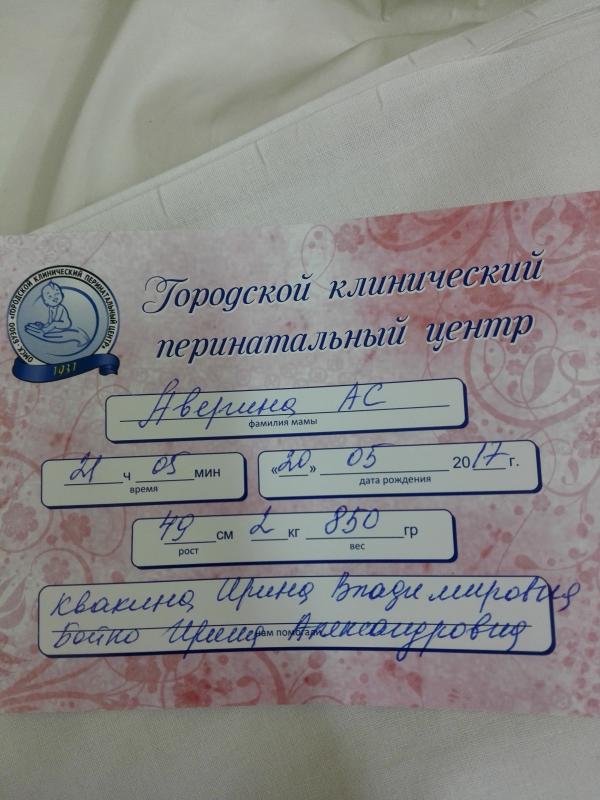 ОМСК • БУЗОО «ГОРОДСКОЙ КЛИНИЧЕСКИЙ ПЕРИНАТАЛЬНЫЙ ЦЕНТР»
1937
Городской клинический
перинатальный центр
Аверина АС
фамилия мамы
21 ч 05 мин
время
«20» 05 2017 г.
дата рождения
49 см 2 кг 850 гр
рост вес
Квакина Ирина Владимировна
Бойко Ирина Александровна
нам помогали